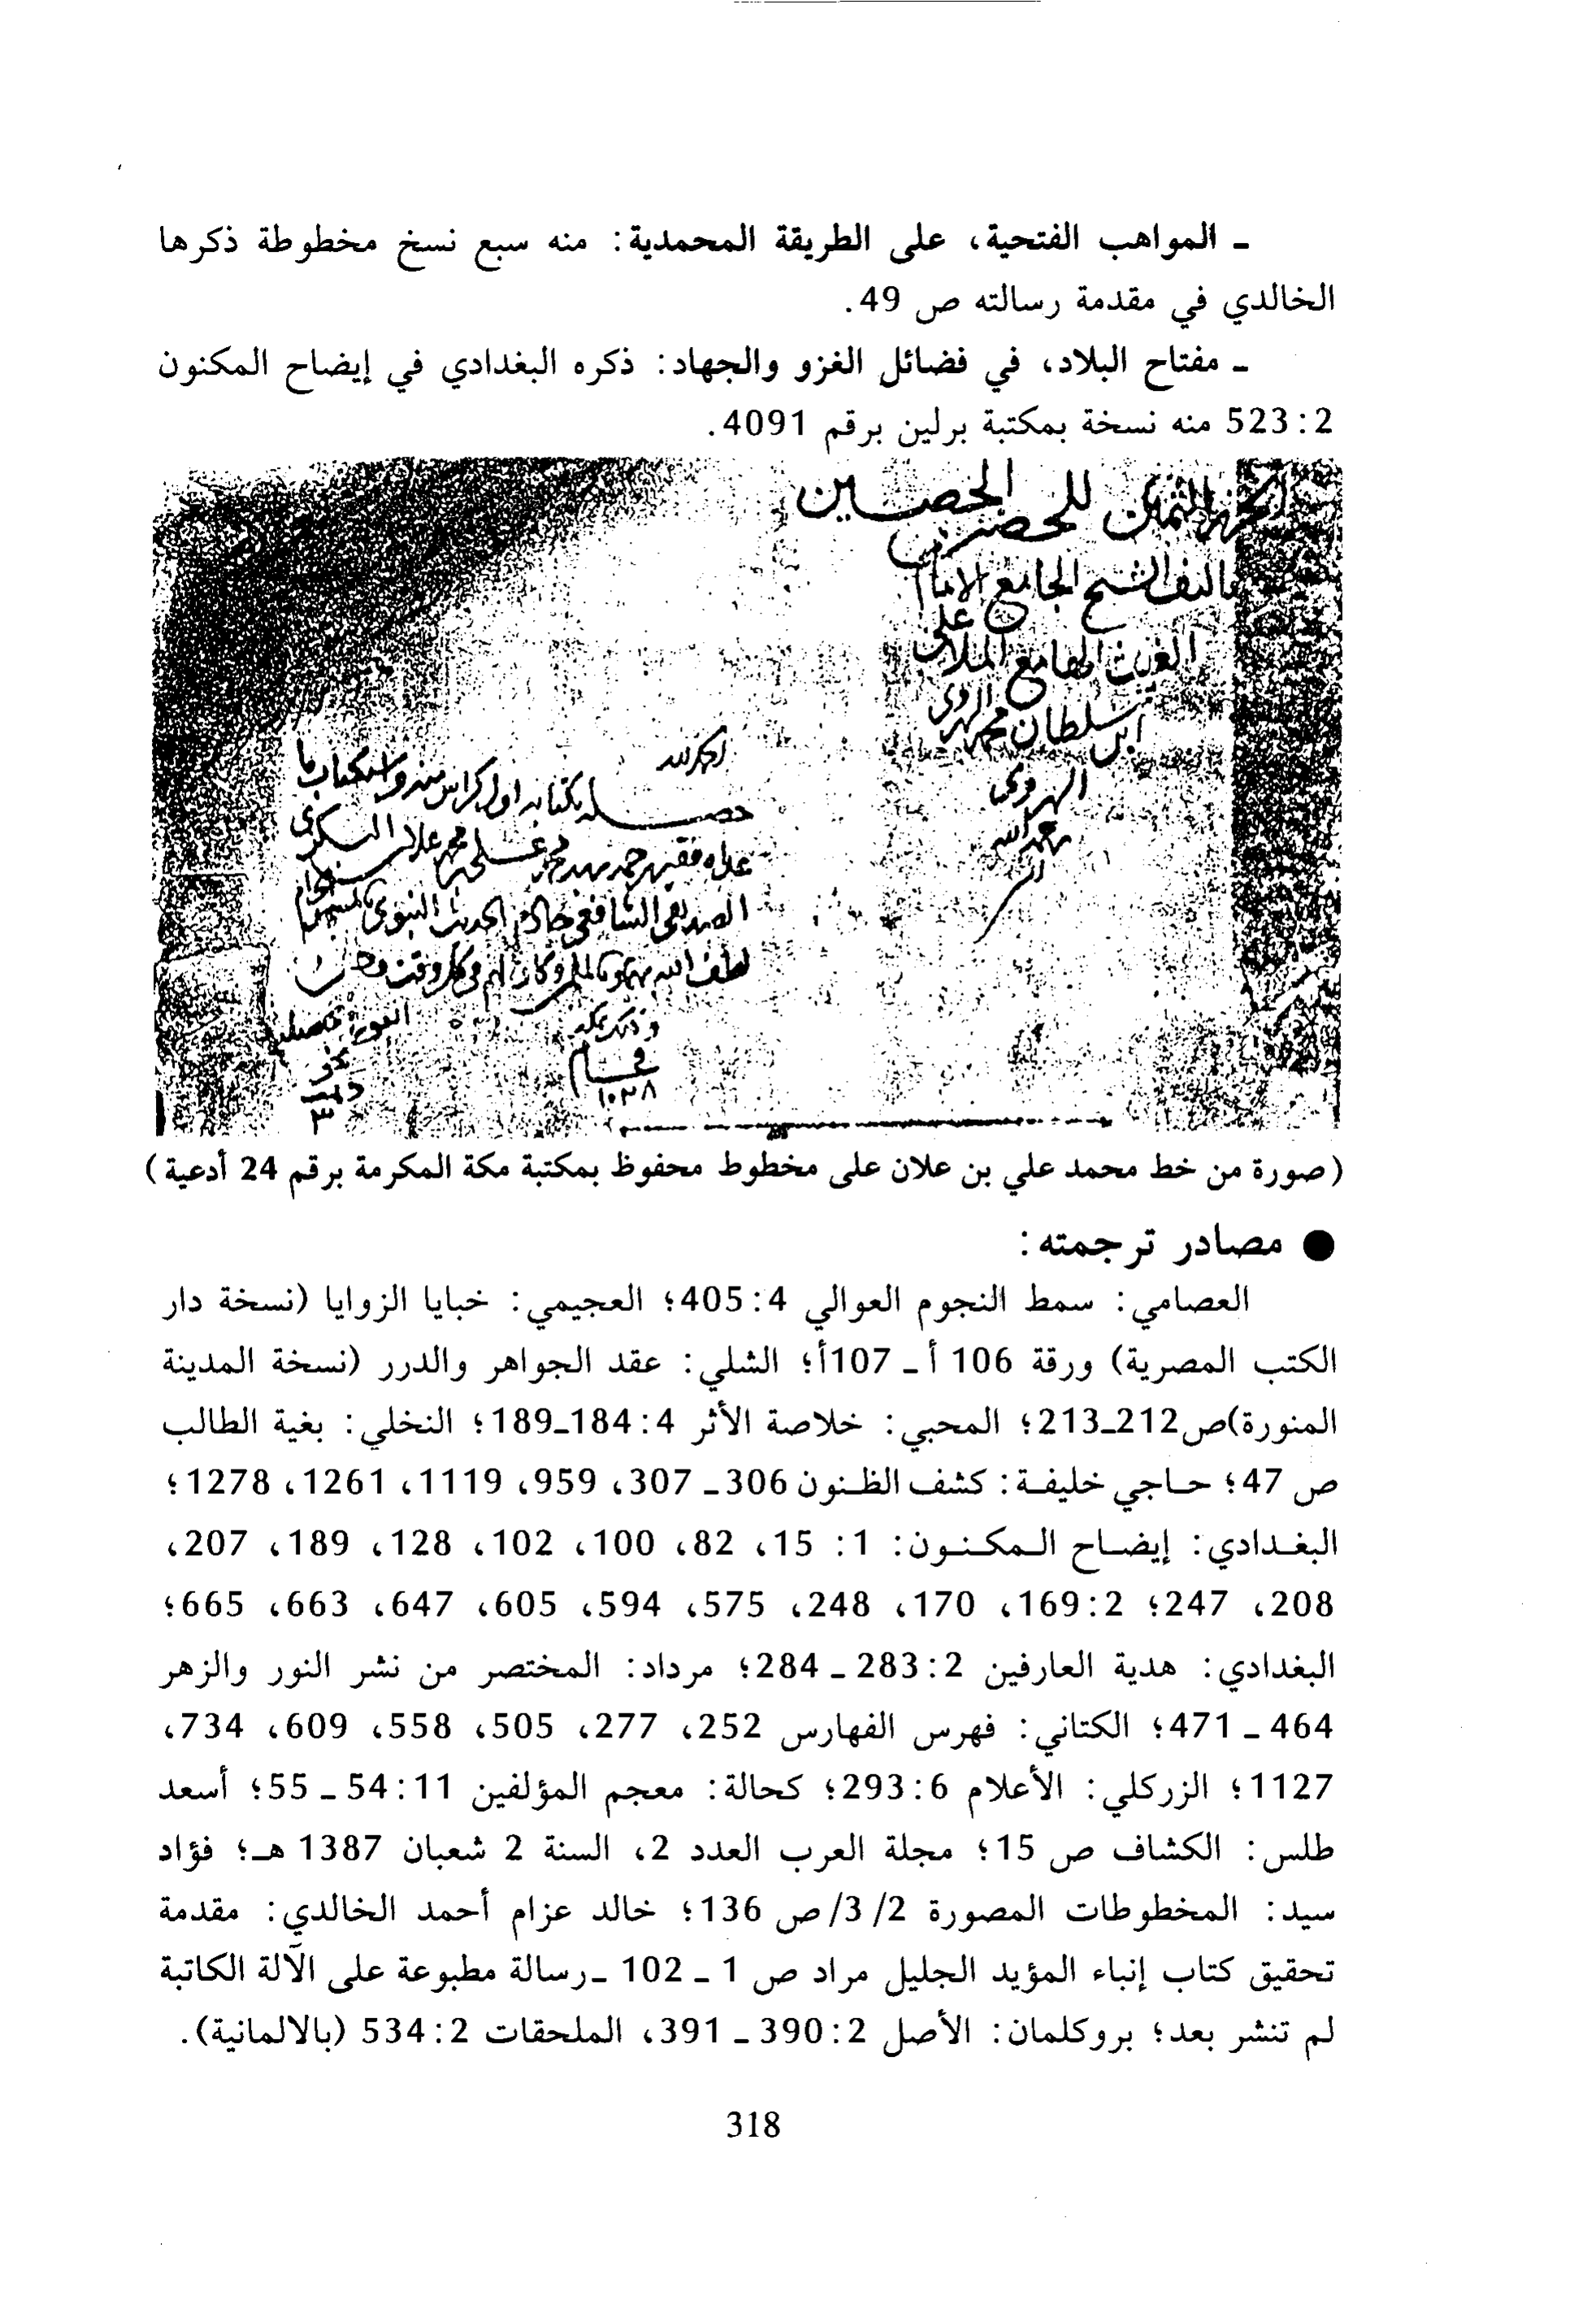 ـ المواهب الفتحية، على الطريقة المحمدية: منه سبع نسخ مخطوطة ذكرها
الخالدي في مقدمة رسالته ص 49.
ـ مفتاح البلاد، في فضائل الغزو والجهاد: ذكره البغدادي في إيضاح المكنون
2:523 منه نسخة بمكتبة برلين برقم 4091.
الحرز الثمين للحصن الحصين
تاليف الشيخ الجامع الامام
الملا علي
ابن سلطان محمد الهروي
الهروي
رحمه الله
الحمد لله
اول كراس منه
محمد علي محمد علان البكري
الصديقي الشافعي خادم الحديث النبوي
لطف الله
في
١٠٣٨
(صورة من خط محمد علي بن علان على مخطوط محفوظ بمكتبة مكة المكرمة برقم 24 أدعية)
● مصادر ترجمته:
العصامي: سمط النجوم العوالي 4:405؛ العجيمي: خبايا الزوايا (نسخة دار
الكتب المصرية) ورقة 106 أ ـ 107أ؛ الشلي: عقد الجواهر والدرر (نسخة المدينة
المنورة)ص212ـ213؛ المحبي: خلاصة الأثر 4:184ـ189؛ النخلي: بغية الطالب
ص 47؛ حاجي خليفة: كشف الظنون 306 ـ 307، 959، 1119، 1261، 1278؛
البغدادي: إيضاح المكنون: 1: 15، 82، 100، 102، 128، 189، 207،
208، 247؛ 2:169، 170، 248، 575، 594، 605، 647، 663، 665؛
البغدادي: هدية العارفين 2:283 ـ 284؛ مرداد: المختصر من نشر النور والزهر
464 ـ 471؛ الكتاني: فهرس الفهارس 252، 277، 505، 558، 609، 734،
1127؛ الزركلي: الأعلام 6:293؛ كحالة: معجم المؤلفين 11:54 ـ 55؛ أسعد
طلس: الكشاف ص 15؛ مجلة العرب العدد 2، السنة 2 شعبان 1387 هـ؛ فؤاد
سيد: المخطوطات المصورة 2/ 3/ص 136؛ خالد عزام أحمد الخالدي: مقدمة
تحقيق كتاب إنباء المؤيد الجليل مراد ص 1 ـ 102 ـ رسالة مطبوعة على الآلة الكاتبة
لم تنشر بعد؛ بروكلمان: الأصل 2:390 ـ 391، الملحقات 2:534 (بالالمانية).
318